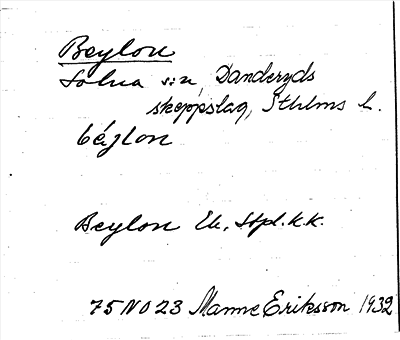 Beylon
Solna sn, Danderyds
skeppslag, Sthlms l.
béjlon
Beylon Ek. Stpl. k.k.
75 NO 23 Manne Eriksson 1932